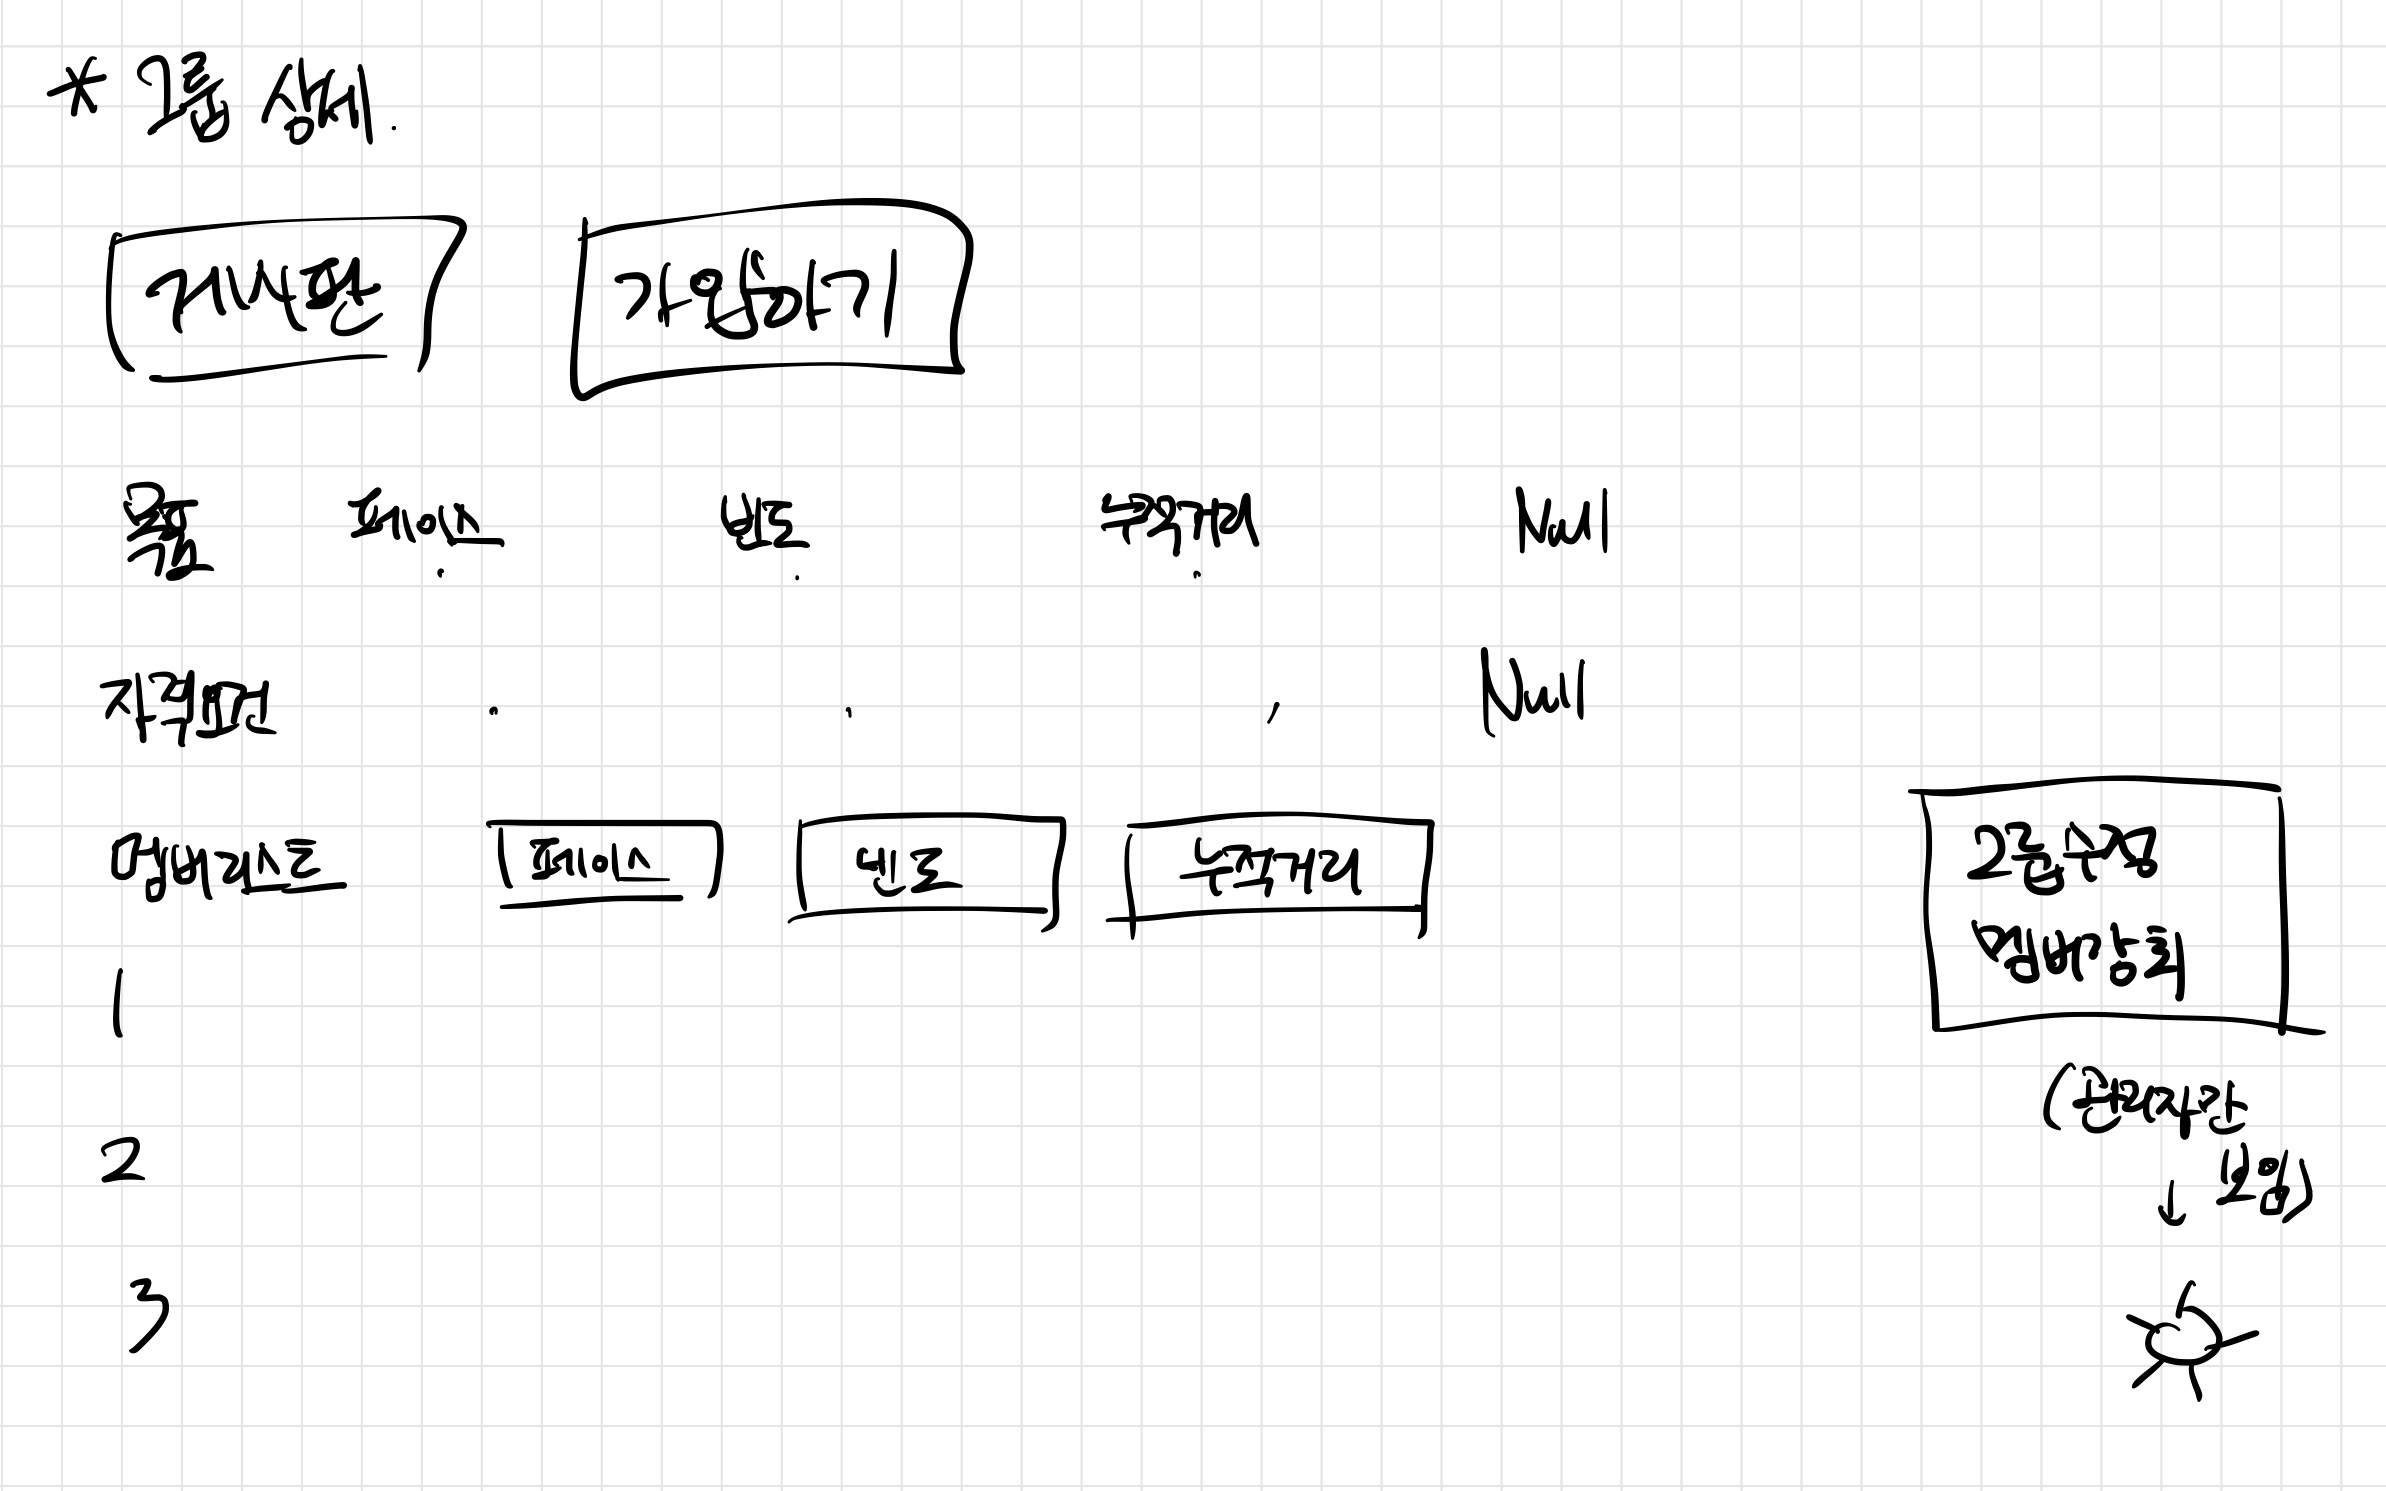 * 그룹 상세.
게시판 가입하기
목표 페이스 빈도 누적거리 Null
자격요건 . . , Null
멤버리스트 페이스 빈도 누적거리
그룹수정
멤버강퇴
1
(관리자만
2 ↓ 보임)
3